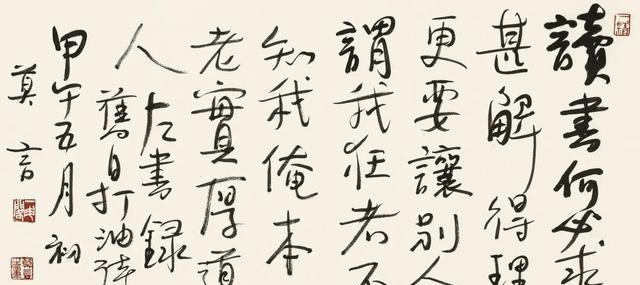 讀書何必求
甚解得理
更要讓別人
謂我狂者不
知我俺本
老實厚道
人左書録
舊自打油詩
甲午五月初
莫言